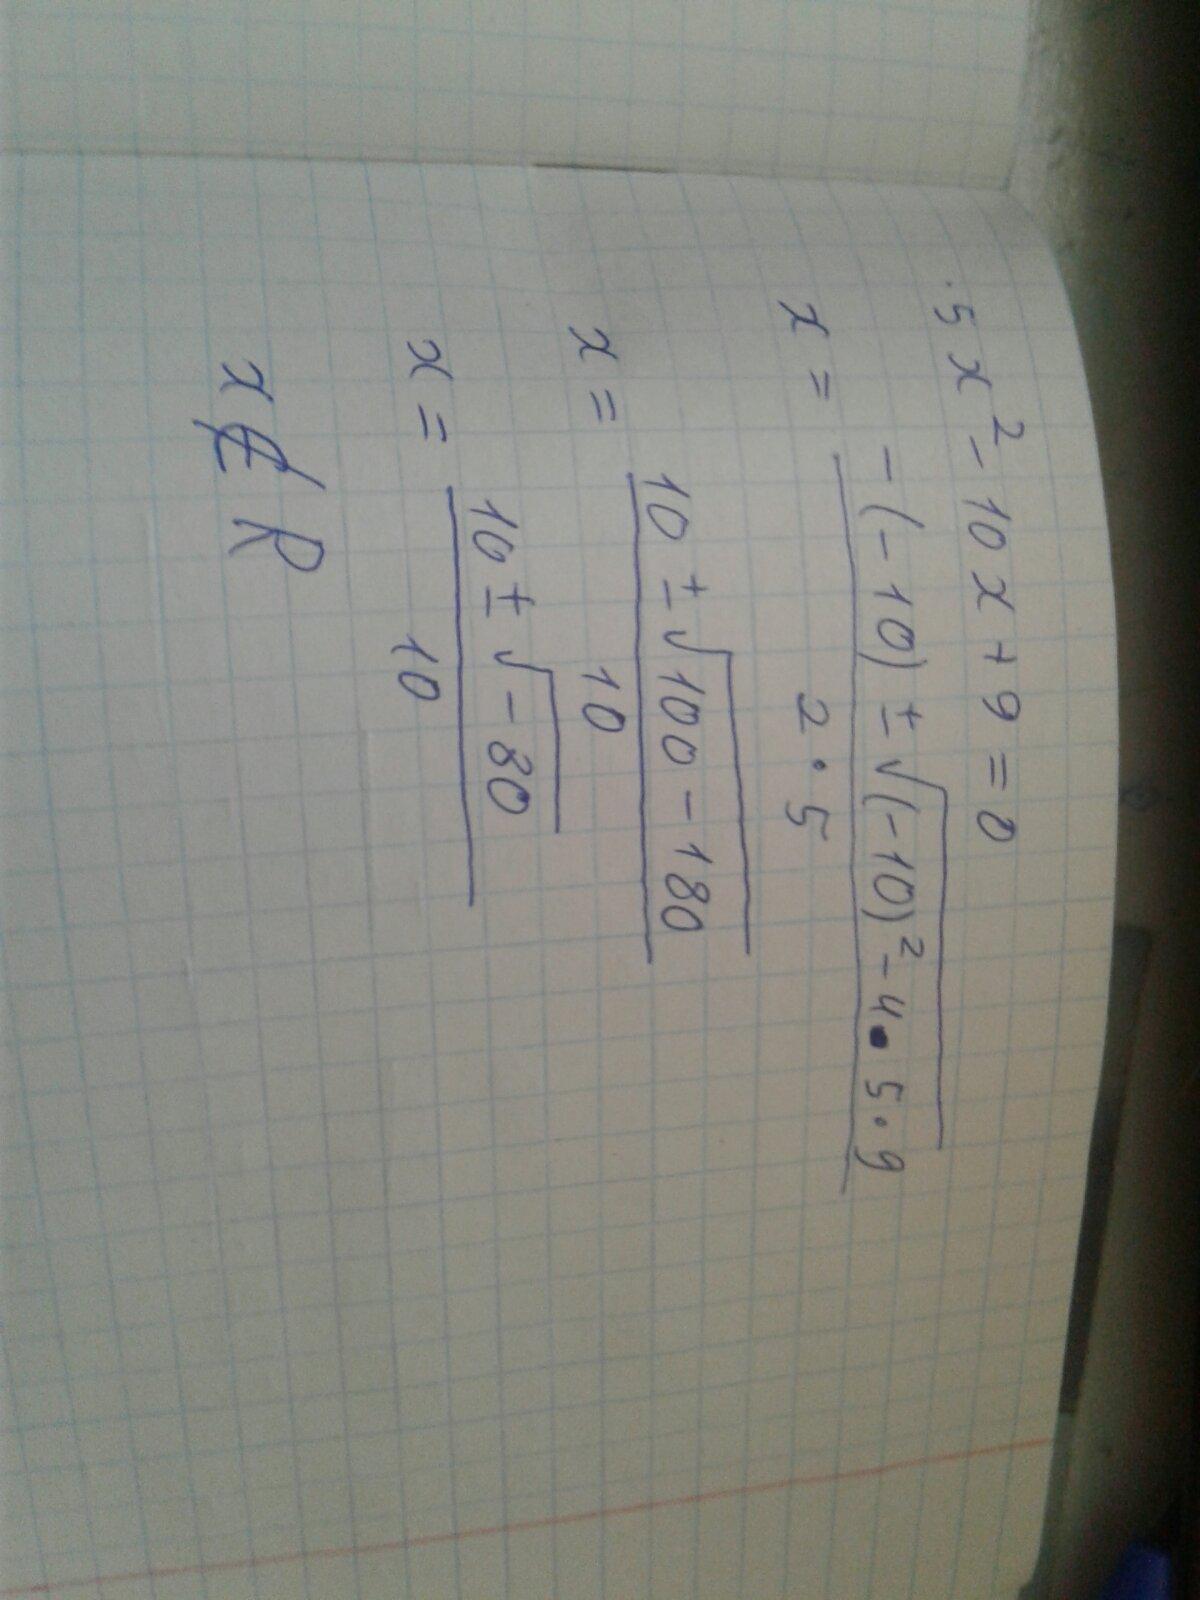 5x² - 10x + 9 = 0
x = (-(-10) ± √((-10)² - 4·5·9)) / (2·5)
x = (10 ± √(100 - 180)) / 10
x = (10 ± √(-80)) / 10
x ∉ R